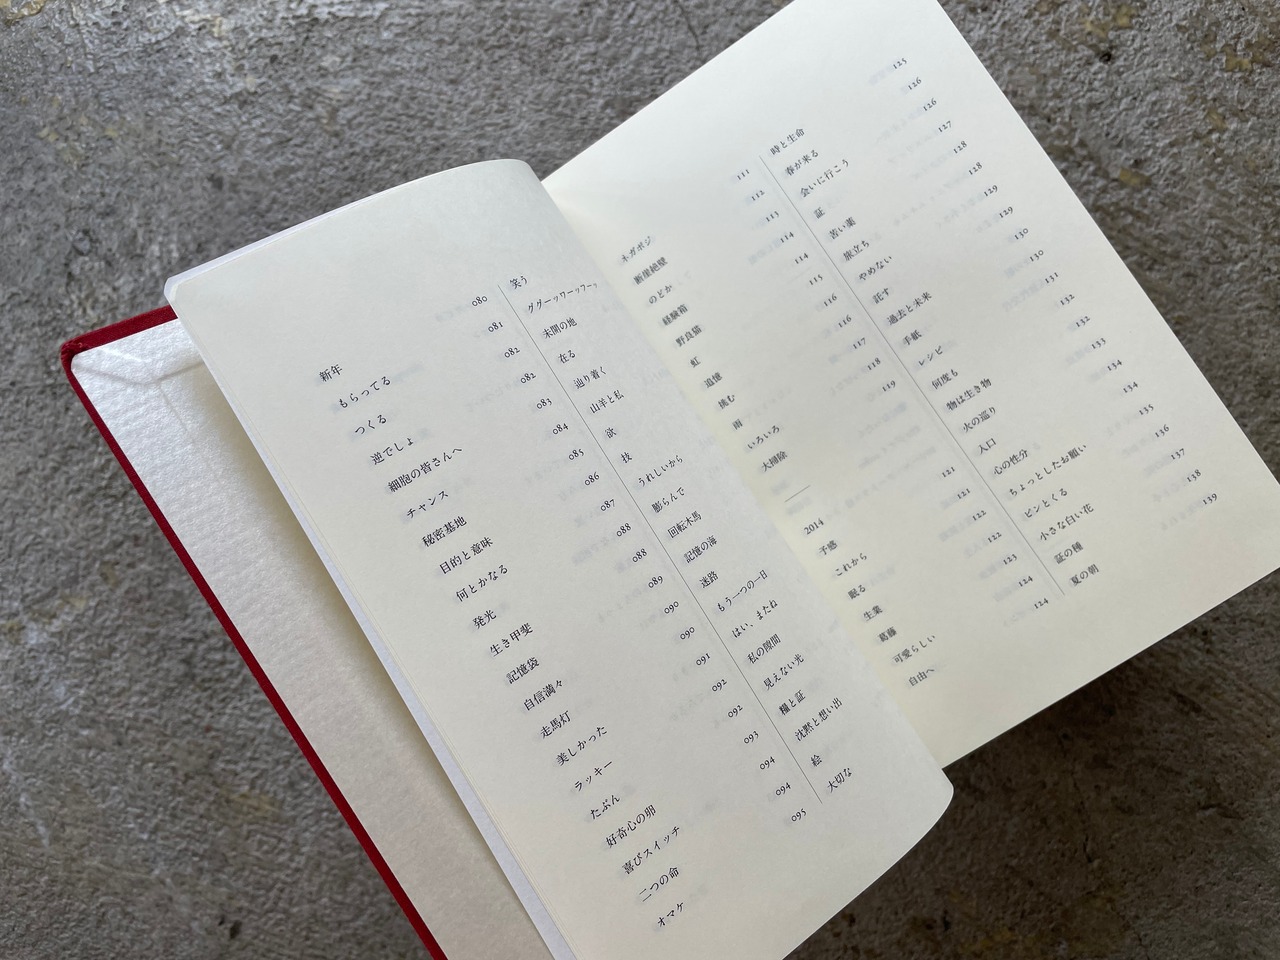 新年 080
もらってる 081
つくる 082
逆でしょ 082
細胞の皆さんへ 083
チャンス 084
秘密基地 085
目的と意味 086
何とかなる 087
発光 088
生き甲斐 088
記憶袋 089
自信満々 090
走馬灯 090
美しかった 091
ラッキー 092
たぶん 092
好奇心の卵 093
喜びスイッチ 094
二つの命 094
オマケ 095
笑う
未開の地
在る
辿り着く
山羊と私
欲
技
うれしいから
膨らんで
回転木馬
記憶の海
迷路
もう一つの一日
はい、またね
私の隙間
見えない光
糧と証
沈黙と想い出
絵
大切な
ネガポジ 111
断崖絶壁 112
のどか 113
経験箱 114
野良猫 114
虹 115
追憶 116
挑む 116
雨 117
いろいろ 118
大掃除 119
2014
予感 121
これから 121
眠る 122
生業 122
葛藤 123
可愛らしい 124
自由へ 124
時と生命 125
春が来る 126
会いに行こう 126
証 127
苦い薬 128
旅立ち 128
やめない 129
託す 129
過去と未来 130
手紙 130
レシピ 131
何度も 132
物は生き物 132
火の巡り 133
入口 134
心の性分 134
ちょっとしたお願い 135
ピンとくる 136
小さな白い花 137
証の種 138
夏の朝 139